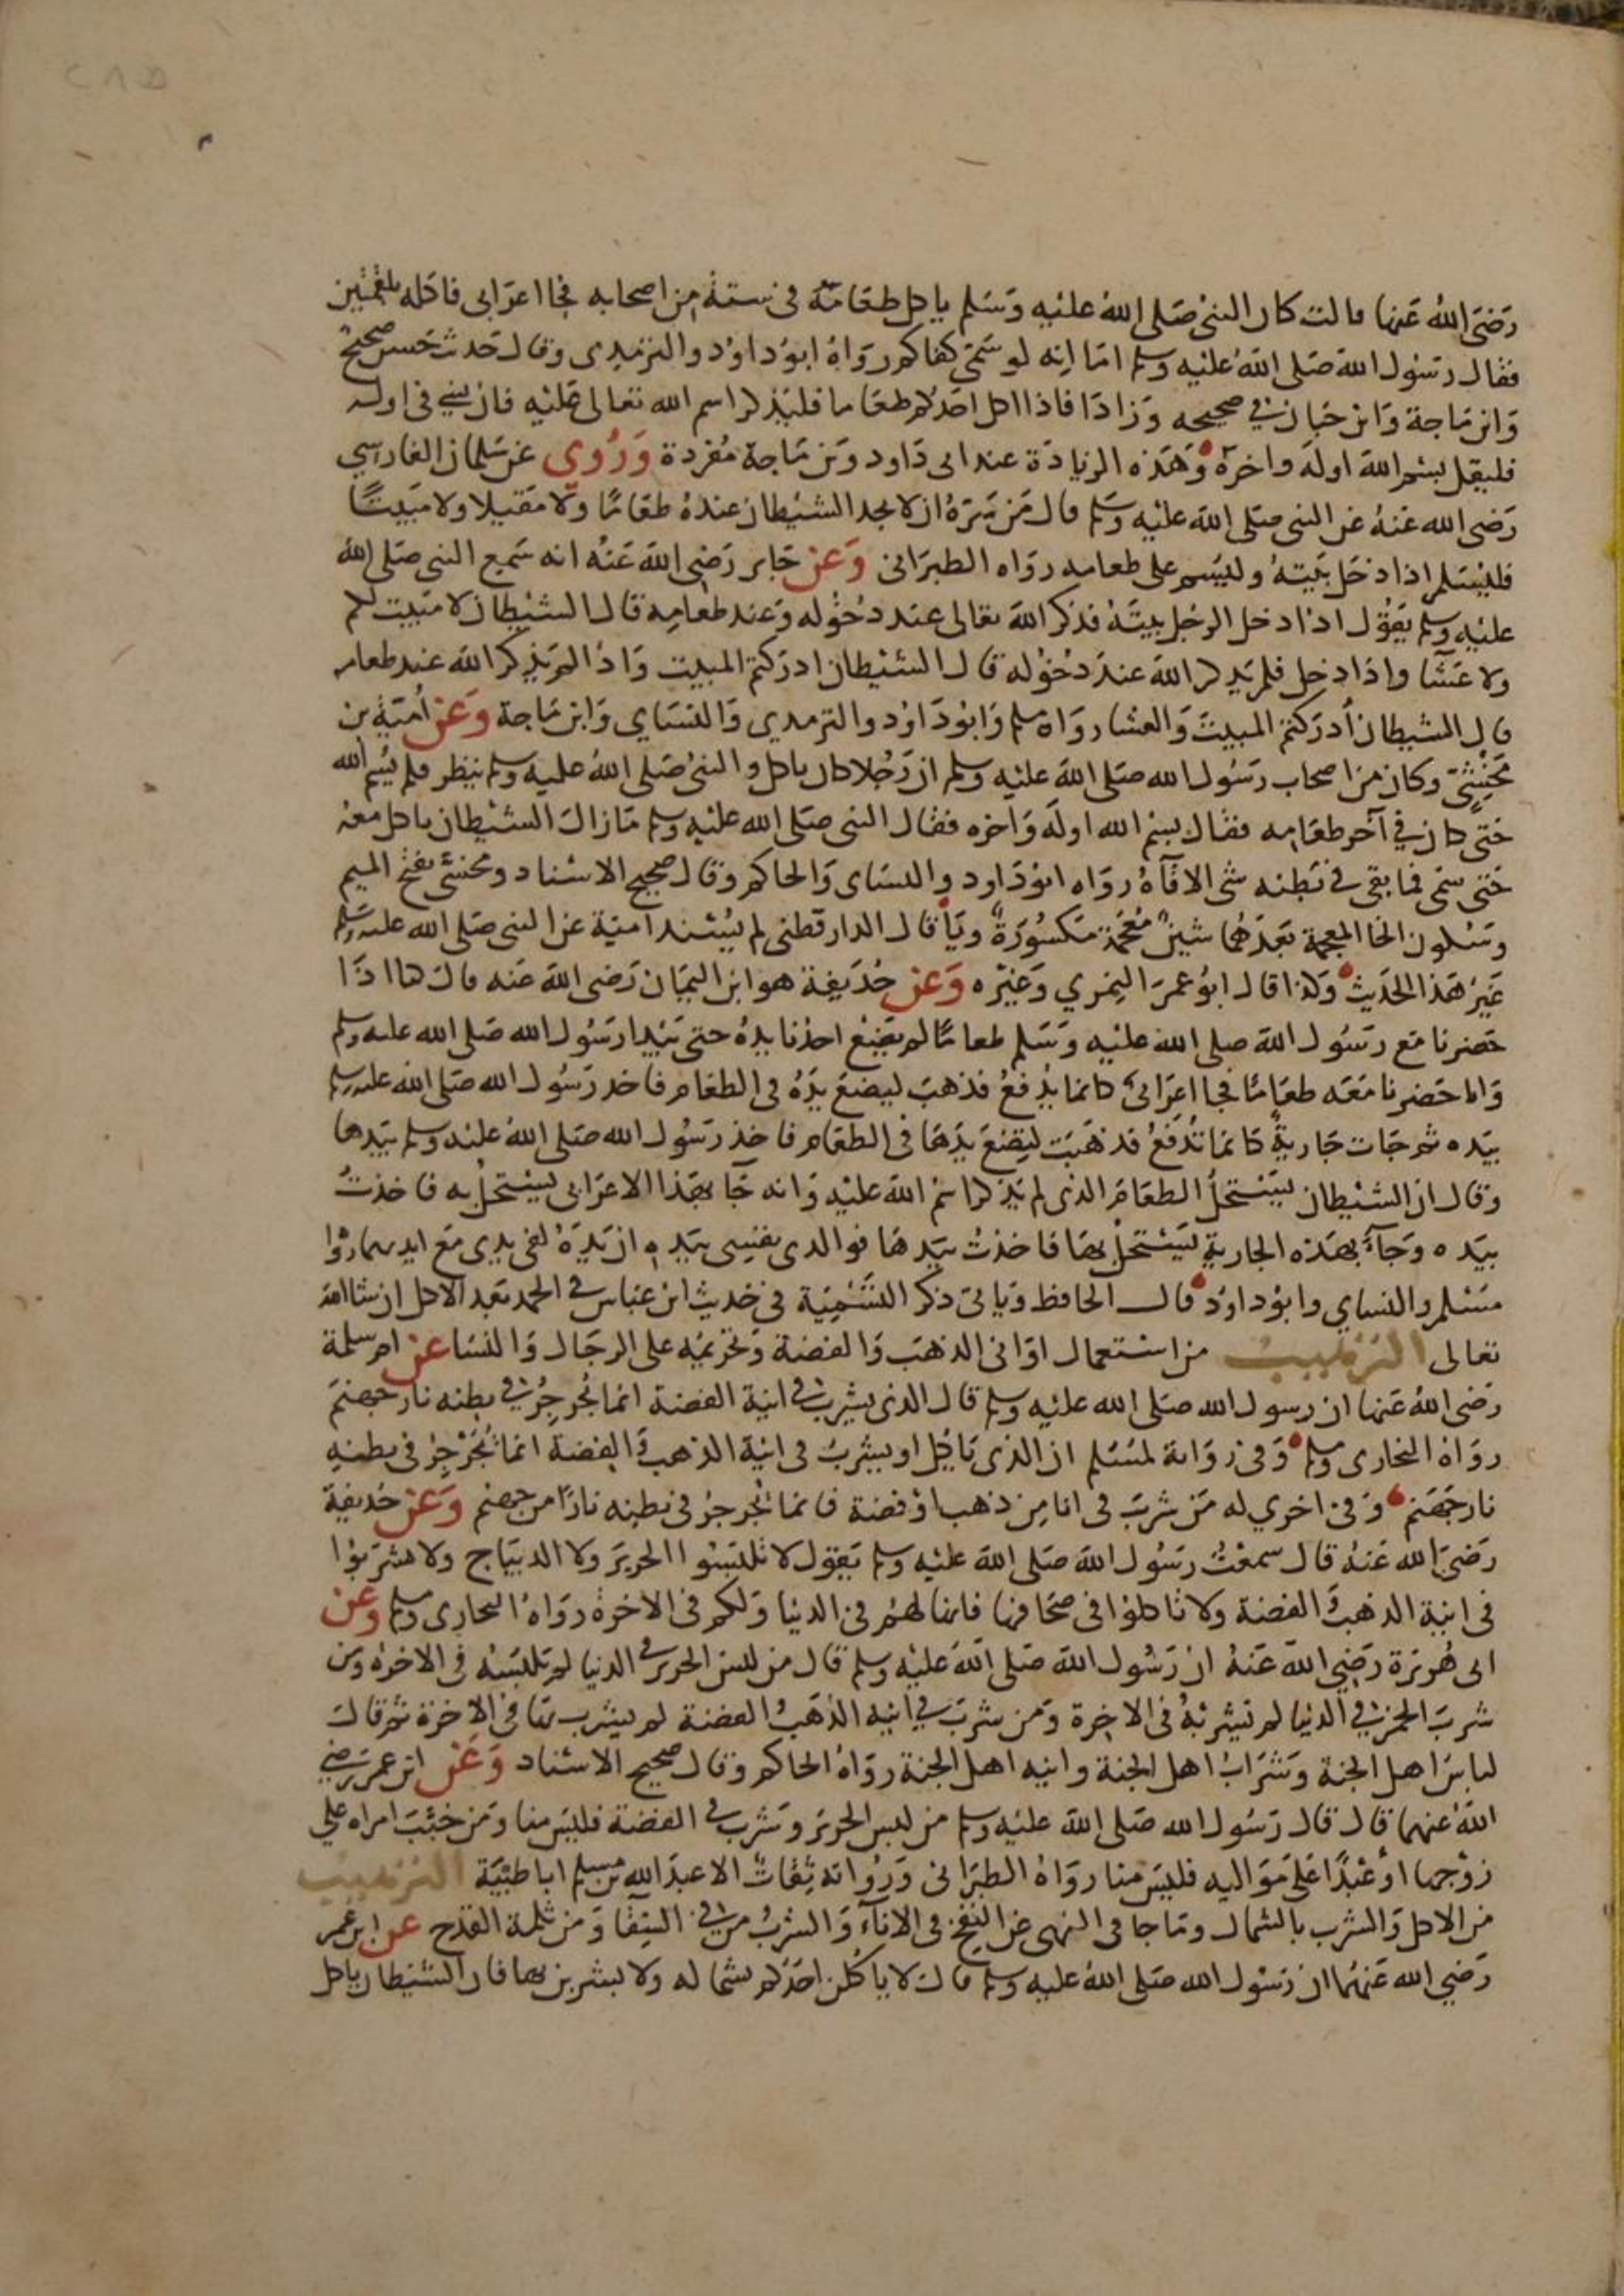 رضي الله عنها قالت كان النبي صلى الله عليه وسلم ياكل طعامه في ستة من اصحابه فجا اعرابي فاكله بلقمتين
فقال رسول الله صلى الله عليه وسلم اما انه لو سمى كفاكم رواه ابو داود والترمذي وقال حديث حسن صحيح
وابن ماجة وابن حبان في صحيحه وزادا فاذا اكل احدكم طعاما فليذكر اسم الله تعالى عليه فان نسي في اوله
فليقل بسم الله اوله واخره وهذه الزيادة عند ابي داود وبن ماجة مفردة وروي عن سلمان الفارسي
رضي الله عنه عن النبي صلى الله عليه وسلم قال من سره ان لا يجد الشيطان عنده طعاما ولا مقيلا ولا مبيتا
فليسلم اذا دخل بيته وليسم على طعامه رواه الطبراني وعن جابر رضي الله عنه انه سمع النبي صلى الله
عليه وسلم يقول اذا دخل الرجل بيته فذكر الله تعالى عند دخوله وعند طعامه قال الشيطان لا مبيت لكم
ولا عشا واذا دخل فلم يذكر الله عند دخوله قال الشيطان ادركتم المبيت واذا لم يذكر الله عند طعامه
قال الشيطان ادركتم المبيت والعشا رواه مسلم وابو داود والترمدي والنساي وابن ماجة وعن امية بن
مخشي وكان من اصحاب رسول الله صلى الله عليه وسلم ان رجلا كان ياكل والنبي صلى الله عليه وسلم ينظر فلم يسم الله
حتى كان في آخر طعامه فقال بسم الله اوله واخره فقال النبي صلى الله عليه وسلم ما زال الشيطان ياكل معه
حتى سمى فما بقى في بطنه شي الا قآه رواه ابو داود والنساي والحاكم وقال صحيح الاسناد ومخشي بفتح الميم
وسكون الخا المعجمة بعدهما شين معجمة مكسورة ويا قال الدارقطني لم يسند امية عن النبي صلى الله عليه وسلم
غير هذا الحديث وكذا قال ابو عمر النمري وغيره وعن حذيفة هو ابن اليمان رضي الله عنه قال كنا اذا
حضرنا مع رسول الله صلى الله عليه وسلم طعاما لم يضع احدنا يده حتى يبدا رسول الله صلى الله عليه وسلم
وانا حضرنا معه طعاما فجا اعرابي كانما يدفع فذهب ليضع يده في الطعام فاخد رسول الله صلى الله عليه وسلم
بيده ثم جات جارية كانما تدفع فذهبت لتضع يدها في الطعام فاخذ رسول الله صلى الله عليه وسلم بيدها
وقال ان الشيطان ليستحل الطعام الذي لم يذكر اسم الله عليه وانه جا بهذا الاعرابي ليستحل به فاخذت
بيده وجآ بهذه الجارية ليستحل بها فاخذت بيدها فوالدي نفسي بيده ان يده لفي يدي مع ايديهما رواه
مسلم والنساي وابو داود قال الحافظ وياتي ذكر التسمية في حديث ابن عباس في الحمد بعد الاكل ان شا الله
تعالى الترهيب من استعمال اواني الذهب والفضة وتحريمه على الرجال والنسا عن ام سلمة
رضي الله عنها ان رسول الله صلى الله عليه وسلم قال الذي يشرب في انية الفضة انما يجرجر في بطنه نار جهنم
رواه البخاري ومسلم وفي رواية لمسلم ان الذي ياكل او يشرب في انية الذهب والفضة انما يجرجر في بطنه
نار جهنم وفي اخري له من شرب في انا من ذهب او فضة فانما يجرجر في بطنه نارا من جهنم وعن حذيفة
رضي الله عنه قال سمعت رسول الله صلى الله عليه وسلم يقول لا تلبسوا الحرير ولا الديباج ولا تشربوا
في انية الذهب والفضة ولا تاكلوا في صحافها فانها لهم في الدنيا ولكم في الاخرة رواه البخاري ومسلم وعن
ابي هريرة رضي الله عنه ان رسول الله صلى الله عليه وسلم قال من لبس الحرير في الدنيا لم يلبسه في الاخرة ومن
شرب الخمر في الدنيا لم يشربه في الاخرة ومن شرب في انيه الذهب والفضة لم يشرب بها في الاخرة ثم قال
لباس اهل الجنة وشراب اهل الجنة وانيه اهل الجنة رواه الحاكم وقال صحيح الاسناد وعن ابن عمر رضي
الله عنهما قال قال رسول الله صلى الله عليه وسلم من لبس الحرير وشرب في الفضة فليس منا ومن خبب امراه علي
زوجها او عبدا على مواليه فليس منا رواه الطبراني ورواته ثقات الا عبد الله بن مسلم ابا طيبة الترهيب
من الاكل والشرب بالشمال وما جا في النهي عن النفخ في الانآء والشرب من في السقا ومن ثلمة القدح عن ابن عمر
رضي الله عنهما ان رسول الله صلى الله عليه وسلم قال لا ياكلن احدكم بشماله ولا يشربن بها فان الشيطان ياكل